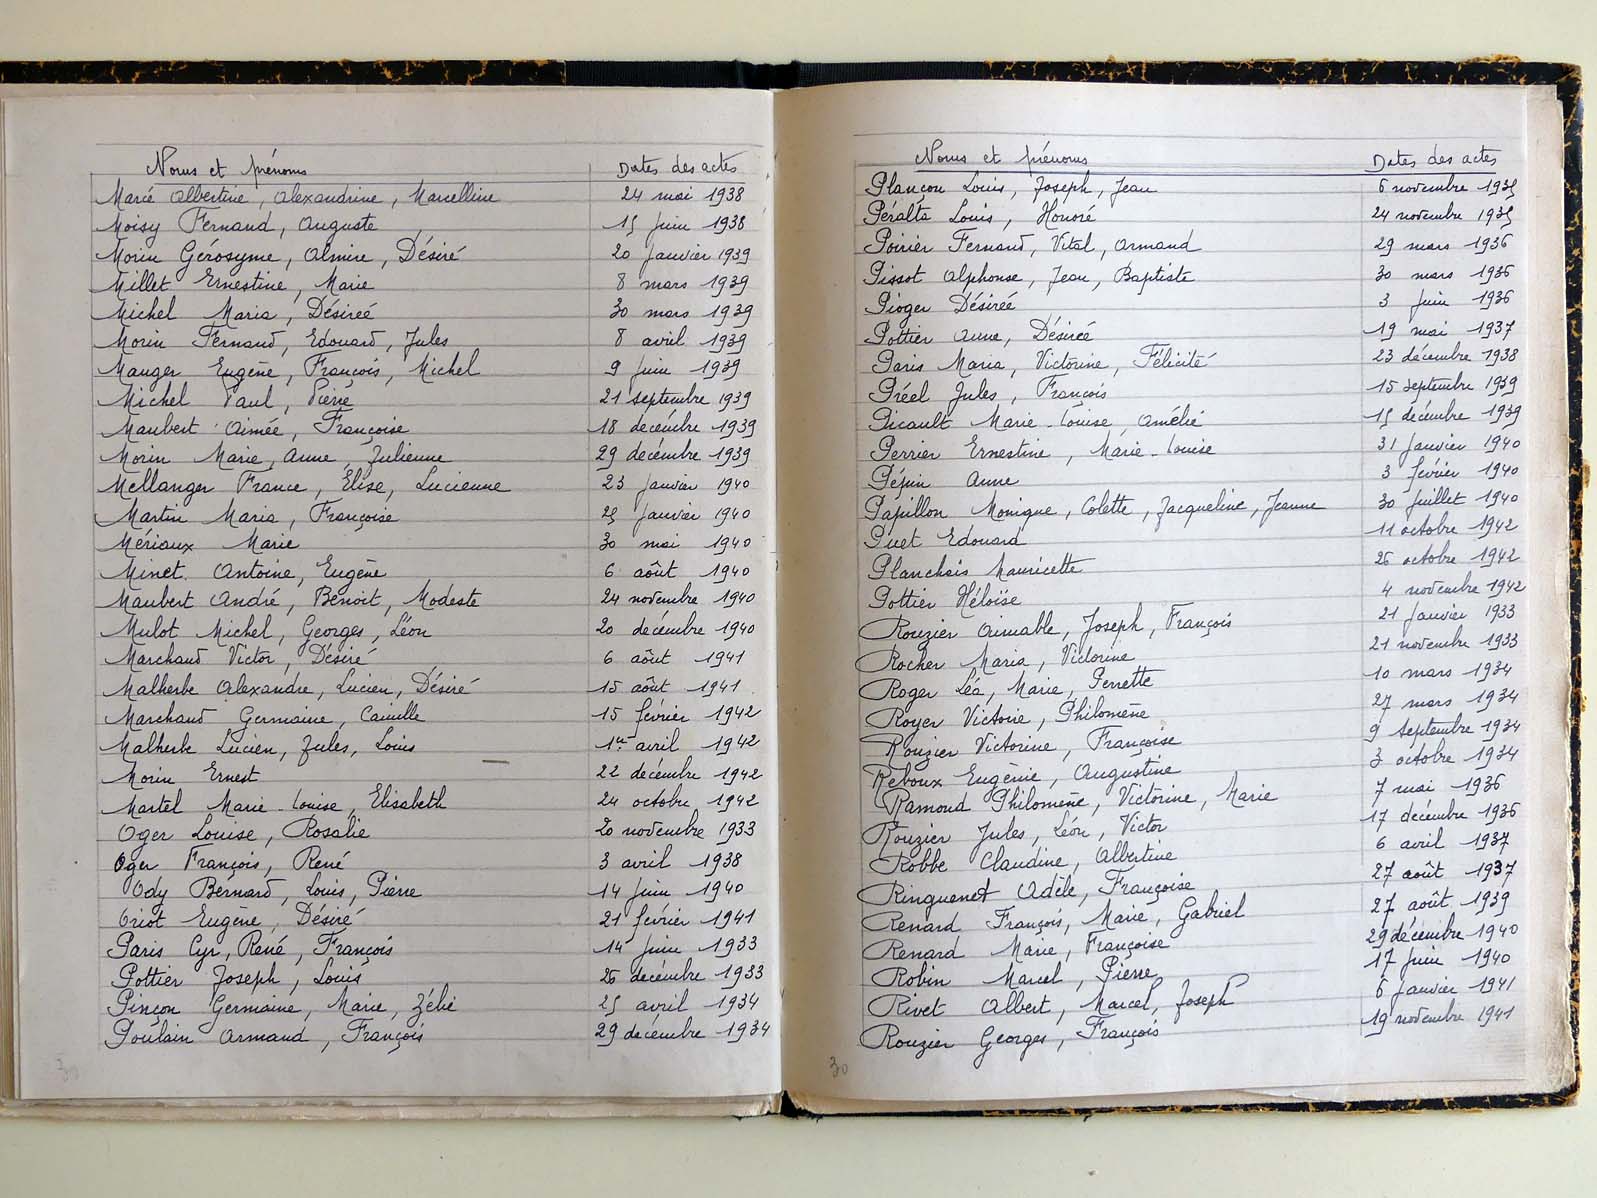 Noms et prénoms Dates des actes
Marie Albertine, Alexandrine, Marcelline 24 mai 1938
Moisy Fernand, Auguste 15 juin 1938
Morin Gérosyme, Almire, Désiré 20 janvier 1939
Millet Ernestine, Marie 8 mars 1939
Michel Maria, Désireé 30 mars 1939
Morin Fernand, Edouard, Jules 8 avril 1939
Mauger Eugène, François, Michel 9 juin 1939
Michel Paul, Pierre 21 septembre 1939
Maubert Aimée, Françoise 18 decémbre 1939
Morin Marie, Anne, Julienne 29 décembre 1939
Mellanger France, Elise, Lucienne 23 janvier 1940
Martin Maria, Françoise 25 janvier 1940
Mériaux Marie 30 mai 1940
Minet Antoine, Eugène 6 août 1940
Maubert André, Benoit, Modeste 24 novembre 1940
Mulot Michel, Georges, Léon 20 decémbre 1940
Marchand Victor, Désiré 6 août 1941
Malherbe Alexandre, Lucien, Désiré 15 août 1941
Marchand Germaine, Camille 15 février 1942
Malherbe Lucien, Jules, Louis 1er avril 1942
Morin Ernest 22 decémbre 1942
Martel Marie-Louise, Elisabeth 24 octobre 1942
Oger Louise, Rosalie 20 novembre 1933
Oger François, René 3 avril 1938
Ody Bernard, Louis, Pierre 14 juin 1940
Oriot Eugène, Désiré 21 février 1941
Paris Cyr, René, François 14 juin 1933
Pottier Joseph, Louis 26 decémbre 1933
Pinçon Germaine, Marie, Zélie 25 avril 1934
Poulain Armand, François 29 decémbre 1934
Noms et prénoms Dates des actes
Plançon Louis, Joseph, Jean 6 novembre 1935
Péralta Louis, Honoré 24 novembre 1935
Poirier Fernand, Vital, Armand 29 mars 1936
Pissot Alphonse, Jean, Baptiste 30 mars 1936
Pioger Désireé 3 juin 1936
Pottier Anne, Désireé 19 mai 1937
Paris Maria, Victorine, Félicité 23 décembre 1938
Préel Jules, François 15 septembre 1939
Picault Marie-Louise, Amélie 15 decémbre 1939
Perrier Ernestine, Marie-Louise 31 janvier 1940
Pépin Anne 3 février 1940
Papillon Monique, Colette, Jacqueline, Jeanne 30 juillet 1940
Puet Edouard 11 octobre 1942
Planchais Mauricette 26 octobre 1942
Pottier Héloïse 4 novembre 1942
Rouzier Aimable, Joseph, François 21 janvier 1933
Rocher Maria, Victorine 21 novembre 1933
Roger Léa, Marie, Perrette 10 mars 1934
Royer Victoire, Philomène 27 mars 1934
Rouzier Victorine, Françoise 9 septembre 1934
Reboux Eugènie, Augustine 3 octobre 1934
Ramond Philomène, Victorine, Marie 7 mai 1936
Rouzier Jules, Léon, Victor 17 décembre 1936
Robbe Claudine, Albertine 6 avril 1937
Ringuenet Adèle, Françoise 27 août 1937
Renard François, Marie, Gabriel 27 août 1939
Renard Marie, Françoise 29 décembre 1940
Robin Marcel, Pierre 17 juin 1940
Rivet Albert, Marcel, Joseph 6 janvier 1941
Rouzier Georges, François 19 novembre 1941
30